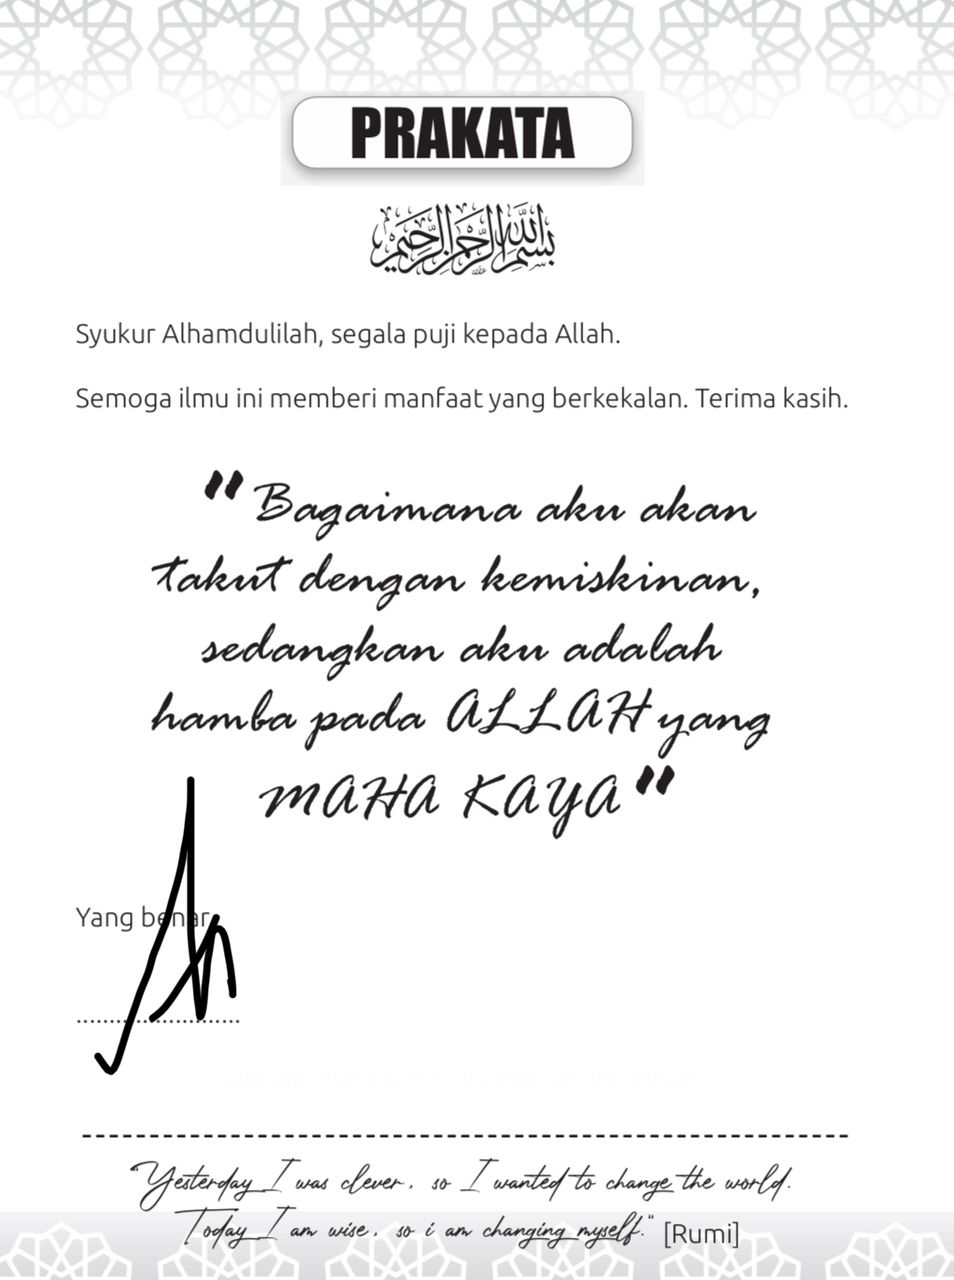 PRAKATA
بسم الله الرحمن الرحيم
Syukur Alhamdulilah, segala puji kepada Allah.
Semoga ilmu ini memberi manfaat yang berkekalan. Terima kasih.
"Bagaimana aku akan
takut dengan kemiskinan,
sedangkan aku adalah
hamba pada ALLAH yang
MAHA KAYA"
Yang benar,
........................
---------------------------------------------------------
"Yesterday I was clever, so I wanted to change the world.
Today I am wise, so i am changing myself." [Rumi]